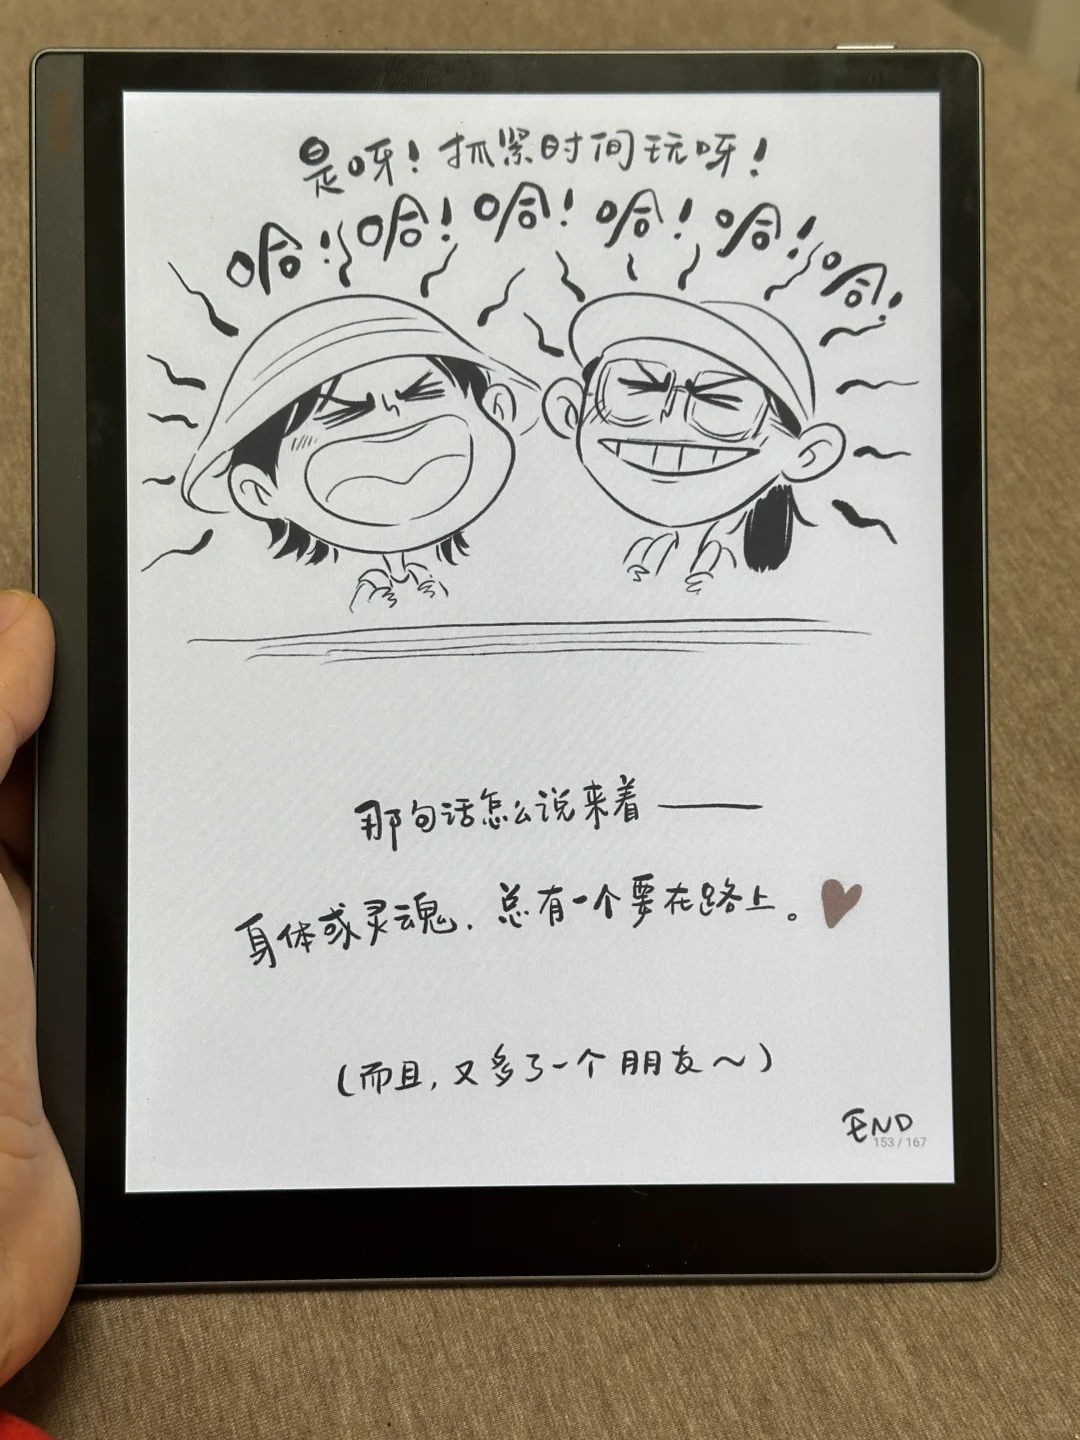 是呀！抓紧时间玩呀！
哈！哈！哈！哈！哈！哈！
那句话怎么说来着——
身体或灵魂，总有一个要在路上。
（而且，又多了一个朋友～）
END
153 / 167